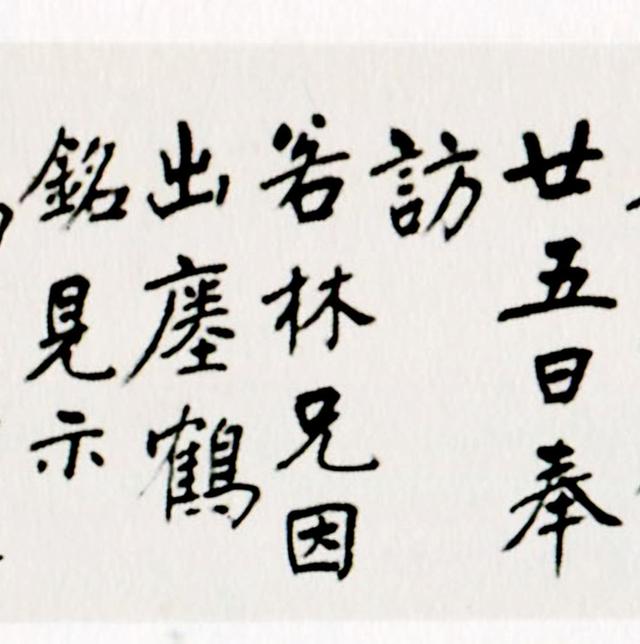 廿五日奉
訪
若林兄因
出瘞鶴
銘見示